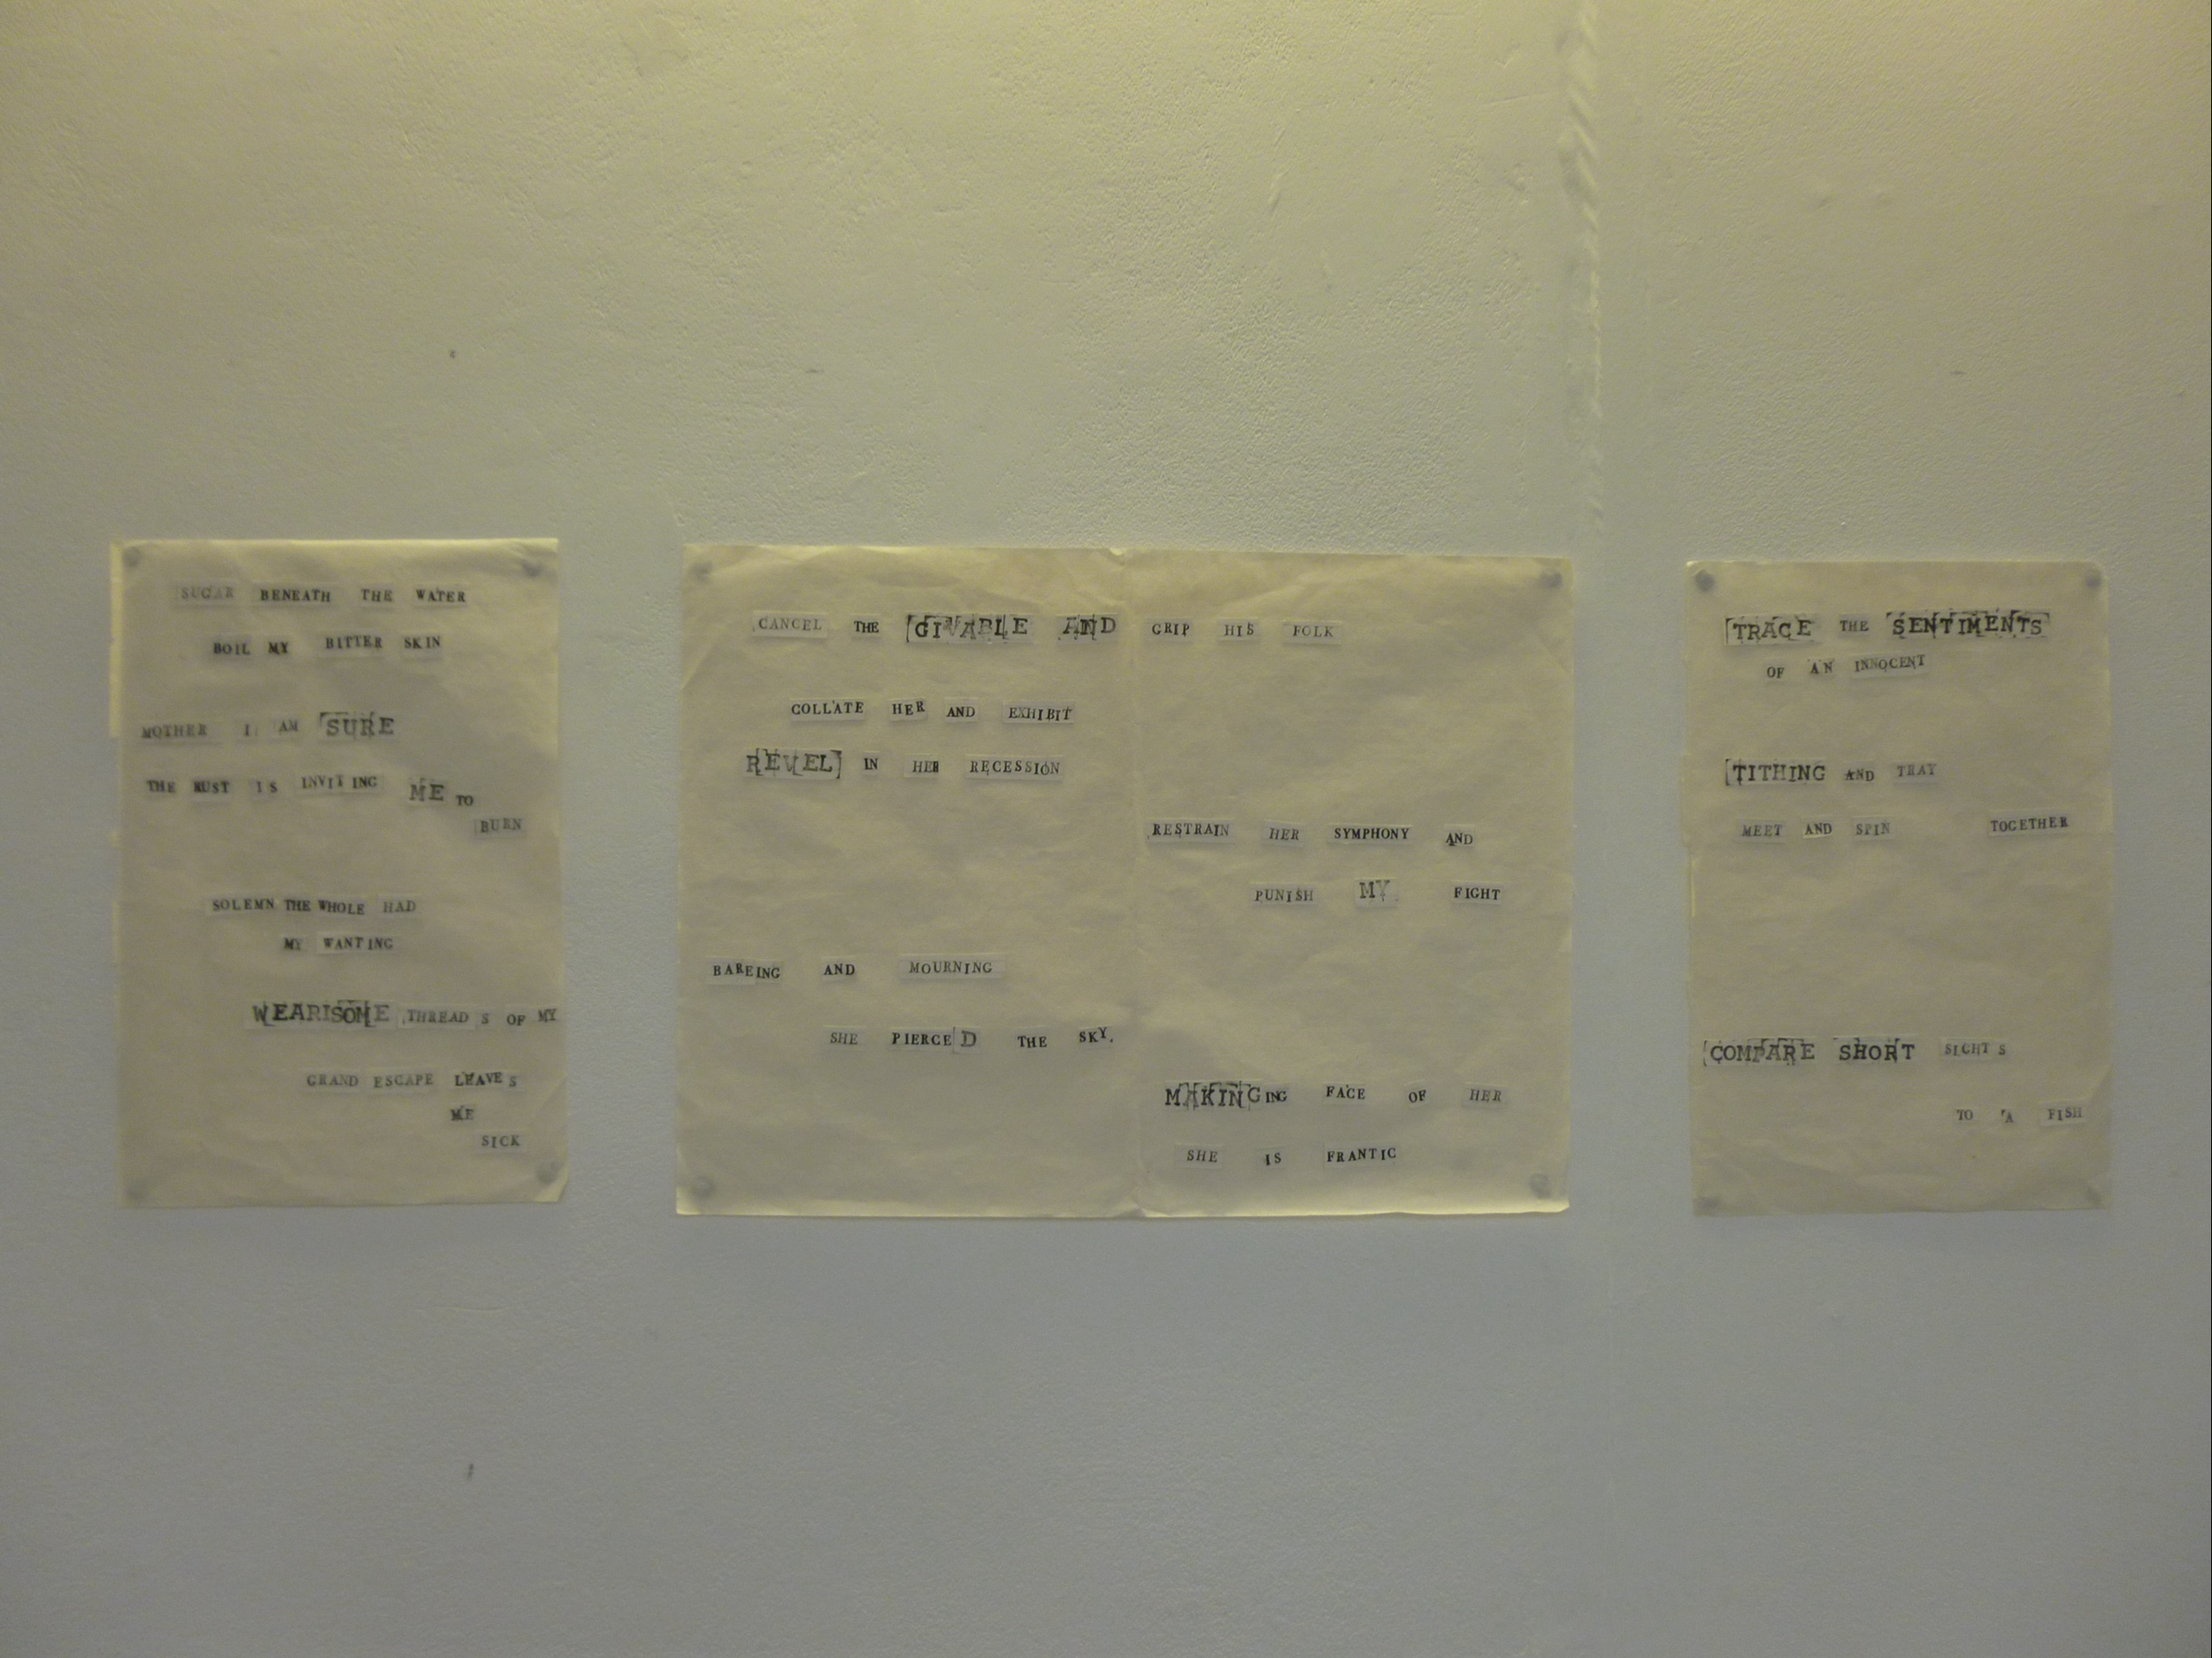 SUGAR BENEATH THE WATER
BOIL MY BITTER SKIN
MOTHER I AM SURE
THE RUST IS INVITING ME TO
BURN
SOLEMN THE WHOLE HAD
MY WANTING
WEARISOME THREADS OF MY
GRAND ESCAPE LEAVES
ME
SICK
CANCEL THE GIVABLE AND GRIP HIS FOLK
COLLATE HER AND EXHIBIT
REVEL IN HER RECESSION
RESTRAIN HER SYMPHONY AND
PUNISH MY FIGHT
BAREING AND MOURNING
SHE PIERCED THE SKY.
MAKINGING FACE OF HER
SHE IS FRANTIC
TRACE THE SENTIMENTS
OF AN INNOCENT
TITHING AND TRAY
MEET AND SPIN TOGETHER
COMPARE SHORT SIGHTS
TO A FISH